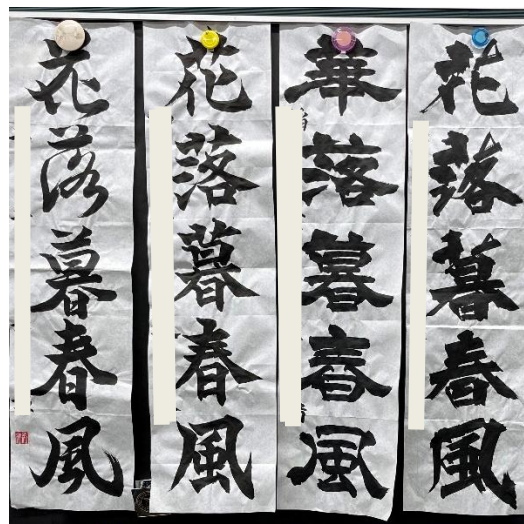 花落暮春風
華落暮春風
花落暮春風
花落暮春風